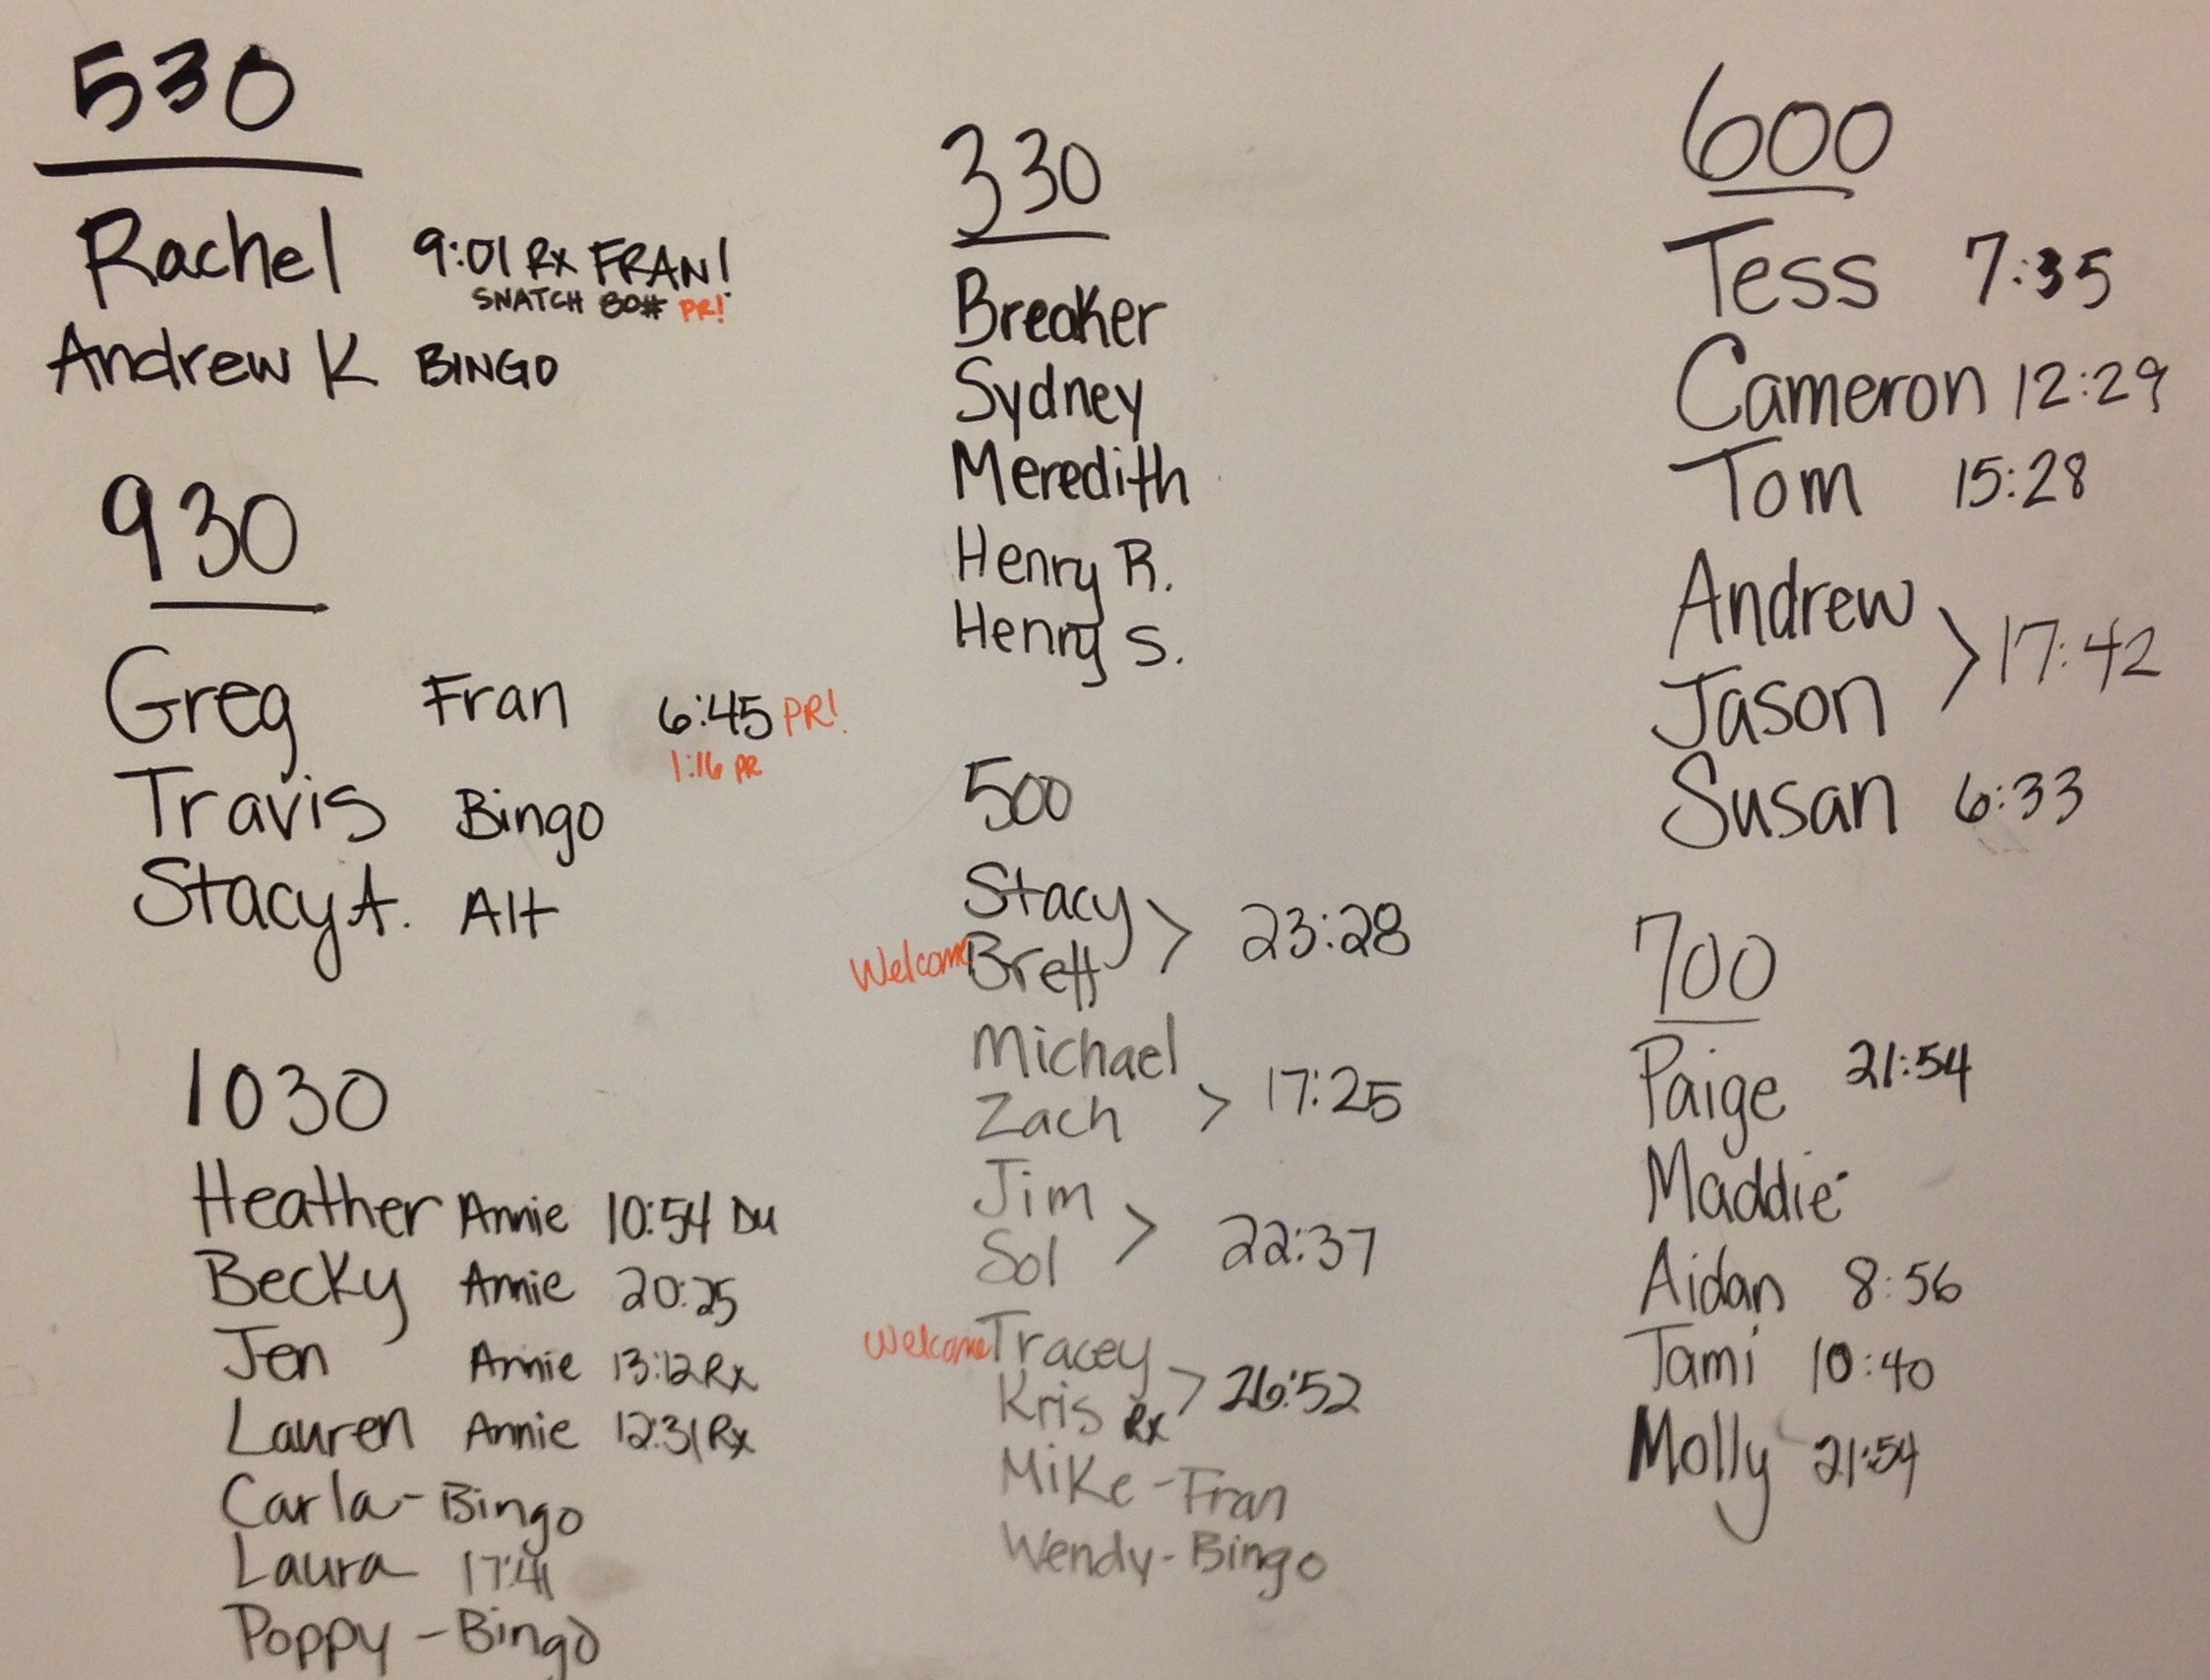 530
Rachel 9:01 Rx FRAN!
SNATCH 80# PR!
Andrew K BINGO
930
Greg Fran 6:45 PR!
1:16 PR
Travis Bingo
Stacy A. Alt
1030
Heather Annie 10:54 Du
Becky Annie 20:25
Jen Annie 13:12 Rx
Lauren Annie 12:31 Rx
Carla - Bingo
Laura 17:41
Poppy - Bingo
330
Breaker
Sydney
Meredith
Henry R.
Henry S.
500
Stacy
> 23:28
Welcome Brett
Michael
Zach > 17:25
Jim
> 22:37
Sol
Welcome Tracey
> 26:52
Kris Rx
Mike - Fran
Wendy - Bingo
600
Tess 7:35
Cameron 12:29
Tom 15:28
Andrew
> 17:42
Jason
Susan 6:33
700
Paige 21:54
Maddie
Aidan 8:56
Tami 10:40
Molly 21:54